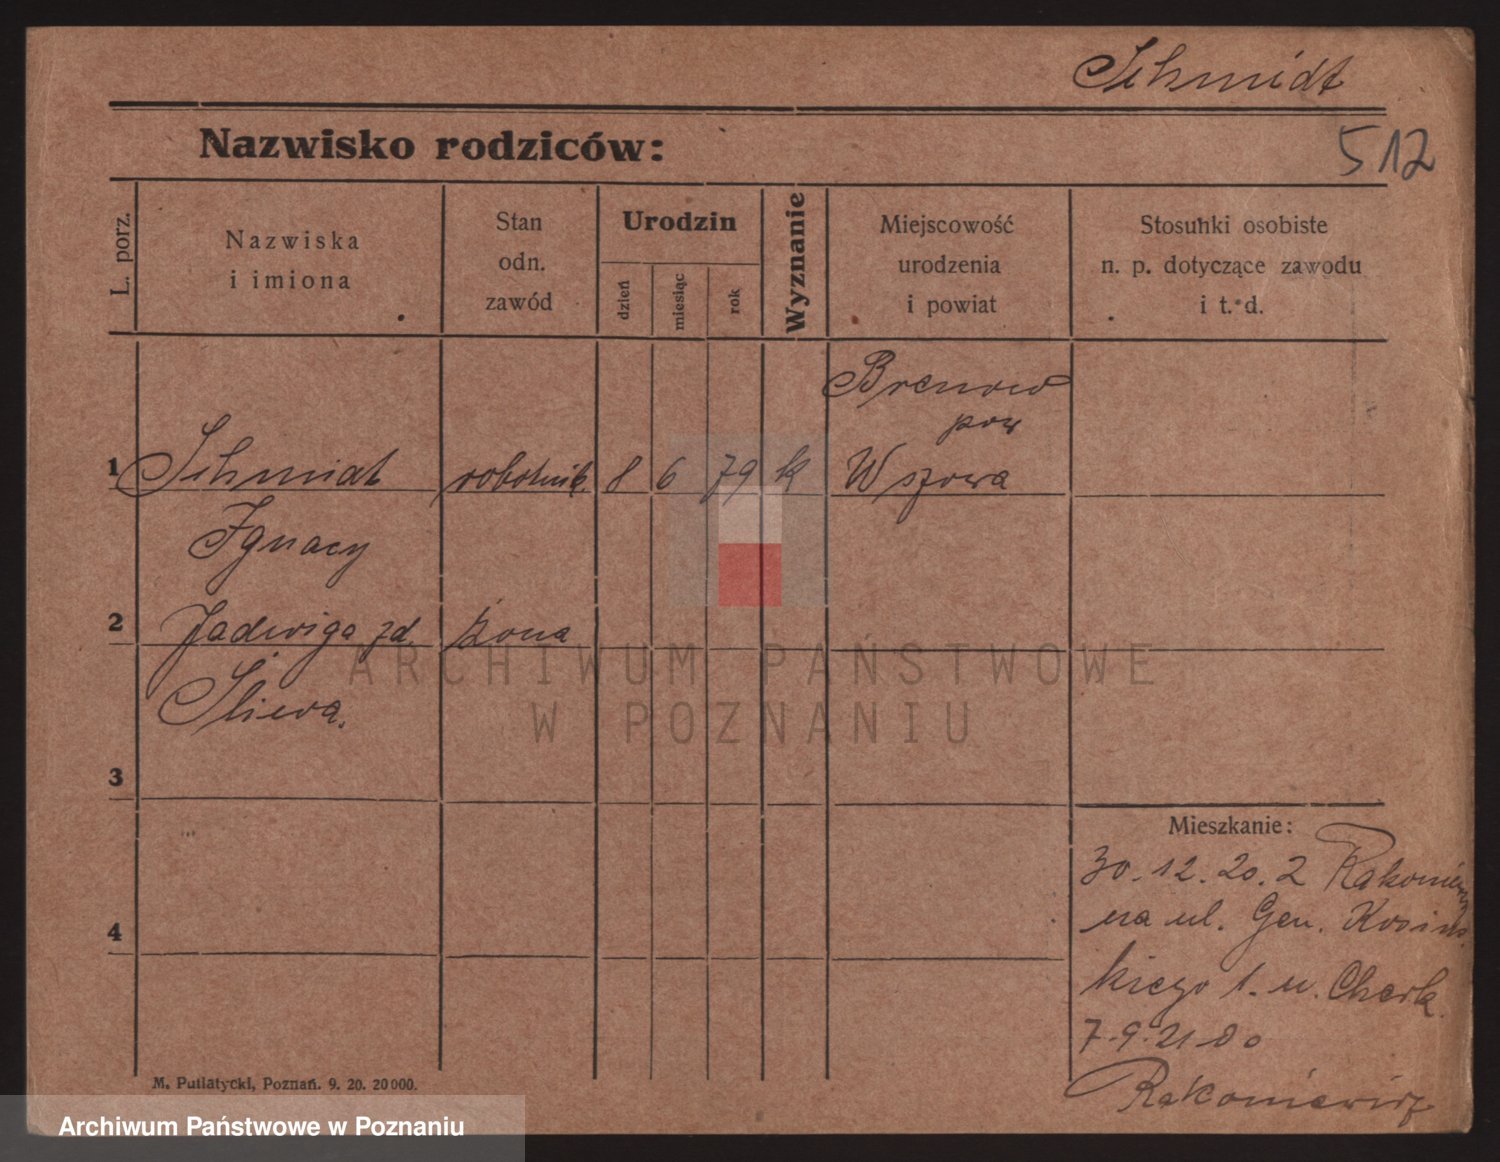 Schmidt
Nazwisko rodziców:
512
L. porz.
Nazwiska
i imiona
Stan
odn.
zawód
Urodzin
dzień
miesiąc
rok
Wyznanie
Miejscowość
urodzenia
i powiat
Stosunki osobiste
n. p. dotyczące zawodu
i t. d.
Brenowo
pow
1 Schmidt robotnik. 8 6 79 k Wszowa
Ignacy
2 Jadwiga zd. żona
Sliewa.
3
4
Mieszkanie:
30.12.20. z Rakoniew
na ul. Gen. Kosins
kiego 1. u. Cherk.
7.9.21 do
Rakoniewicz
M. Putiatycki, Poznań. 9. 20. 20000.
ARCHIWUM PAŃSTWOWE
W POZNANIU
Archiwum Państwowe w Poznaniu